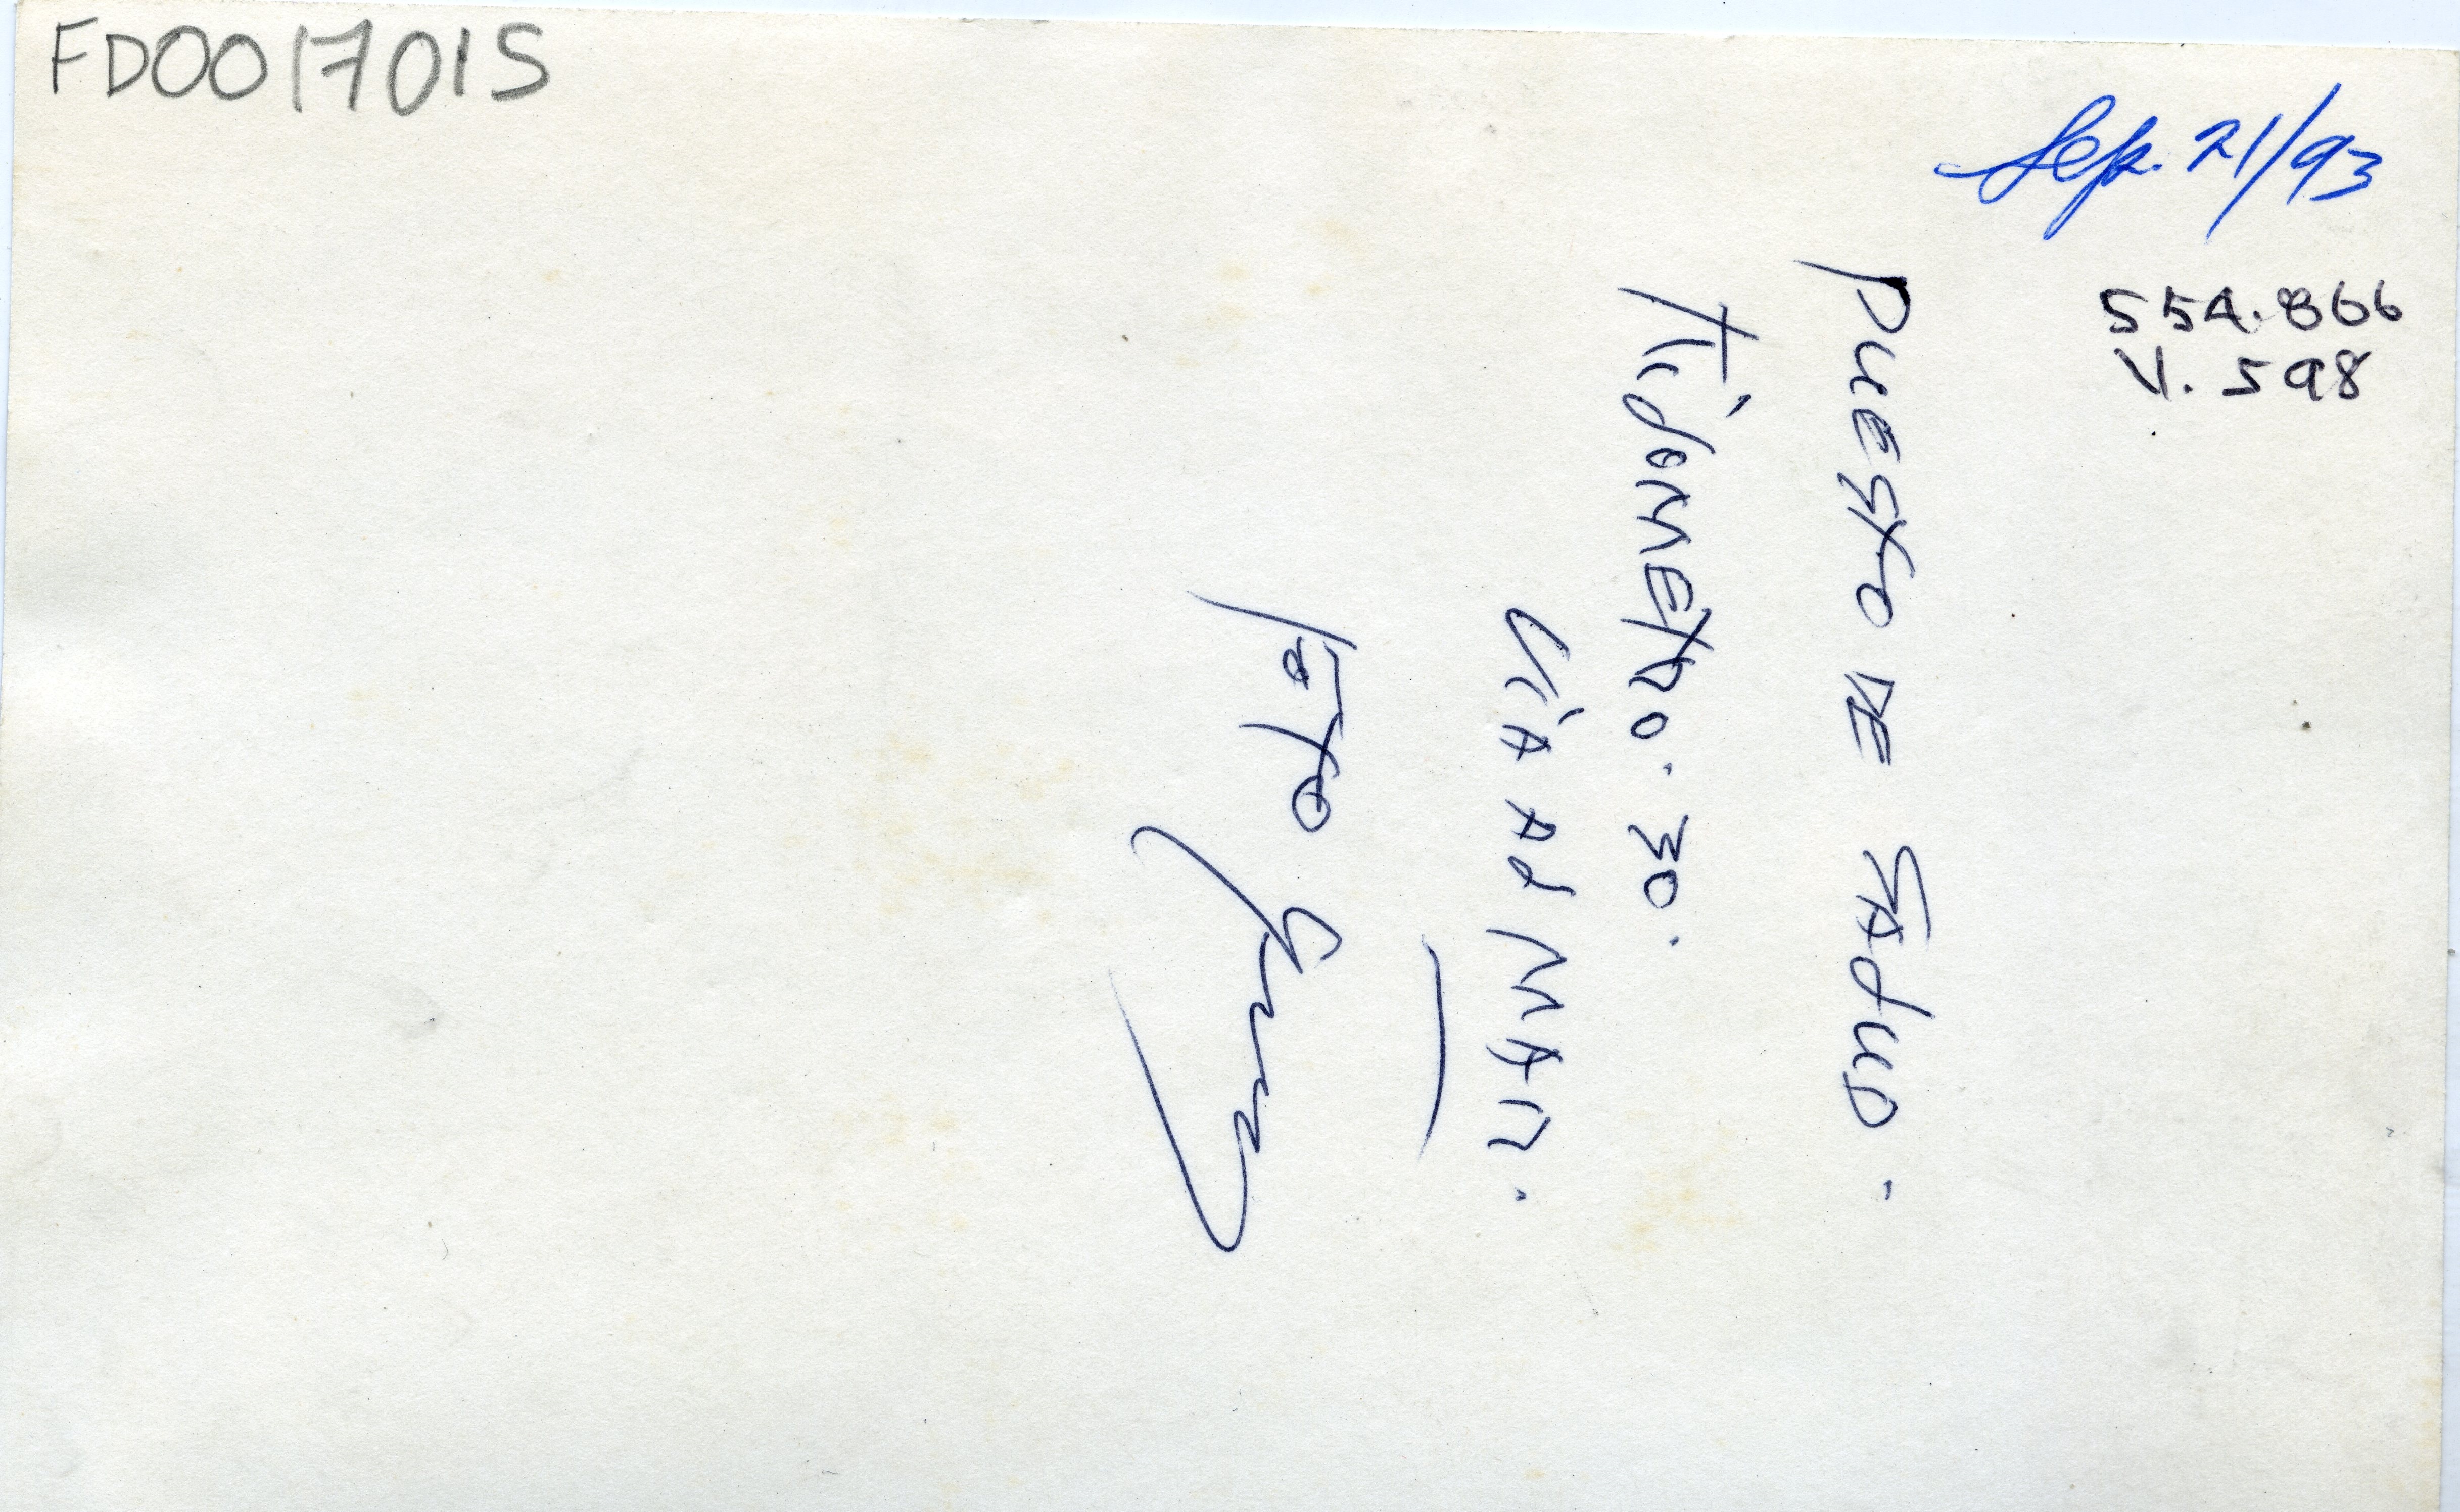 FD0017015
Sep. 21/93
554.866
V. 598
PUESTO DE SALUD.
KilóMETRO. 30.
VÍA AL MAR.
FOTO